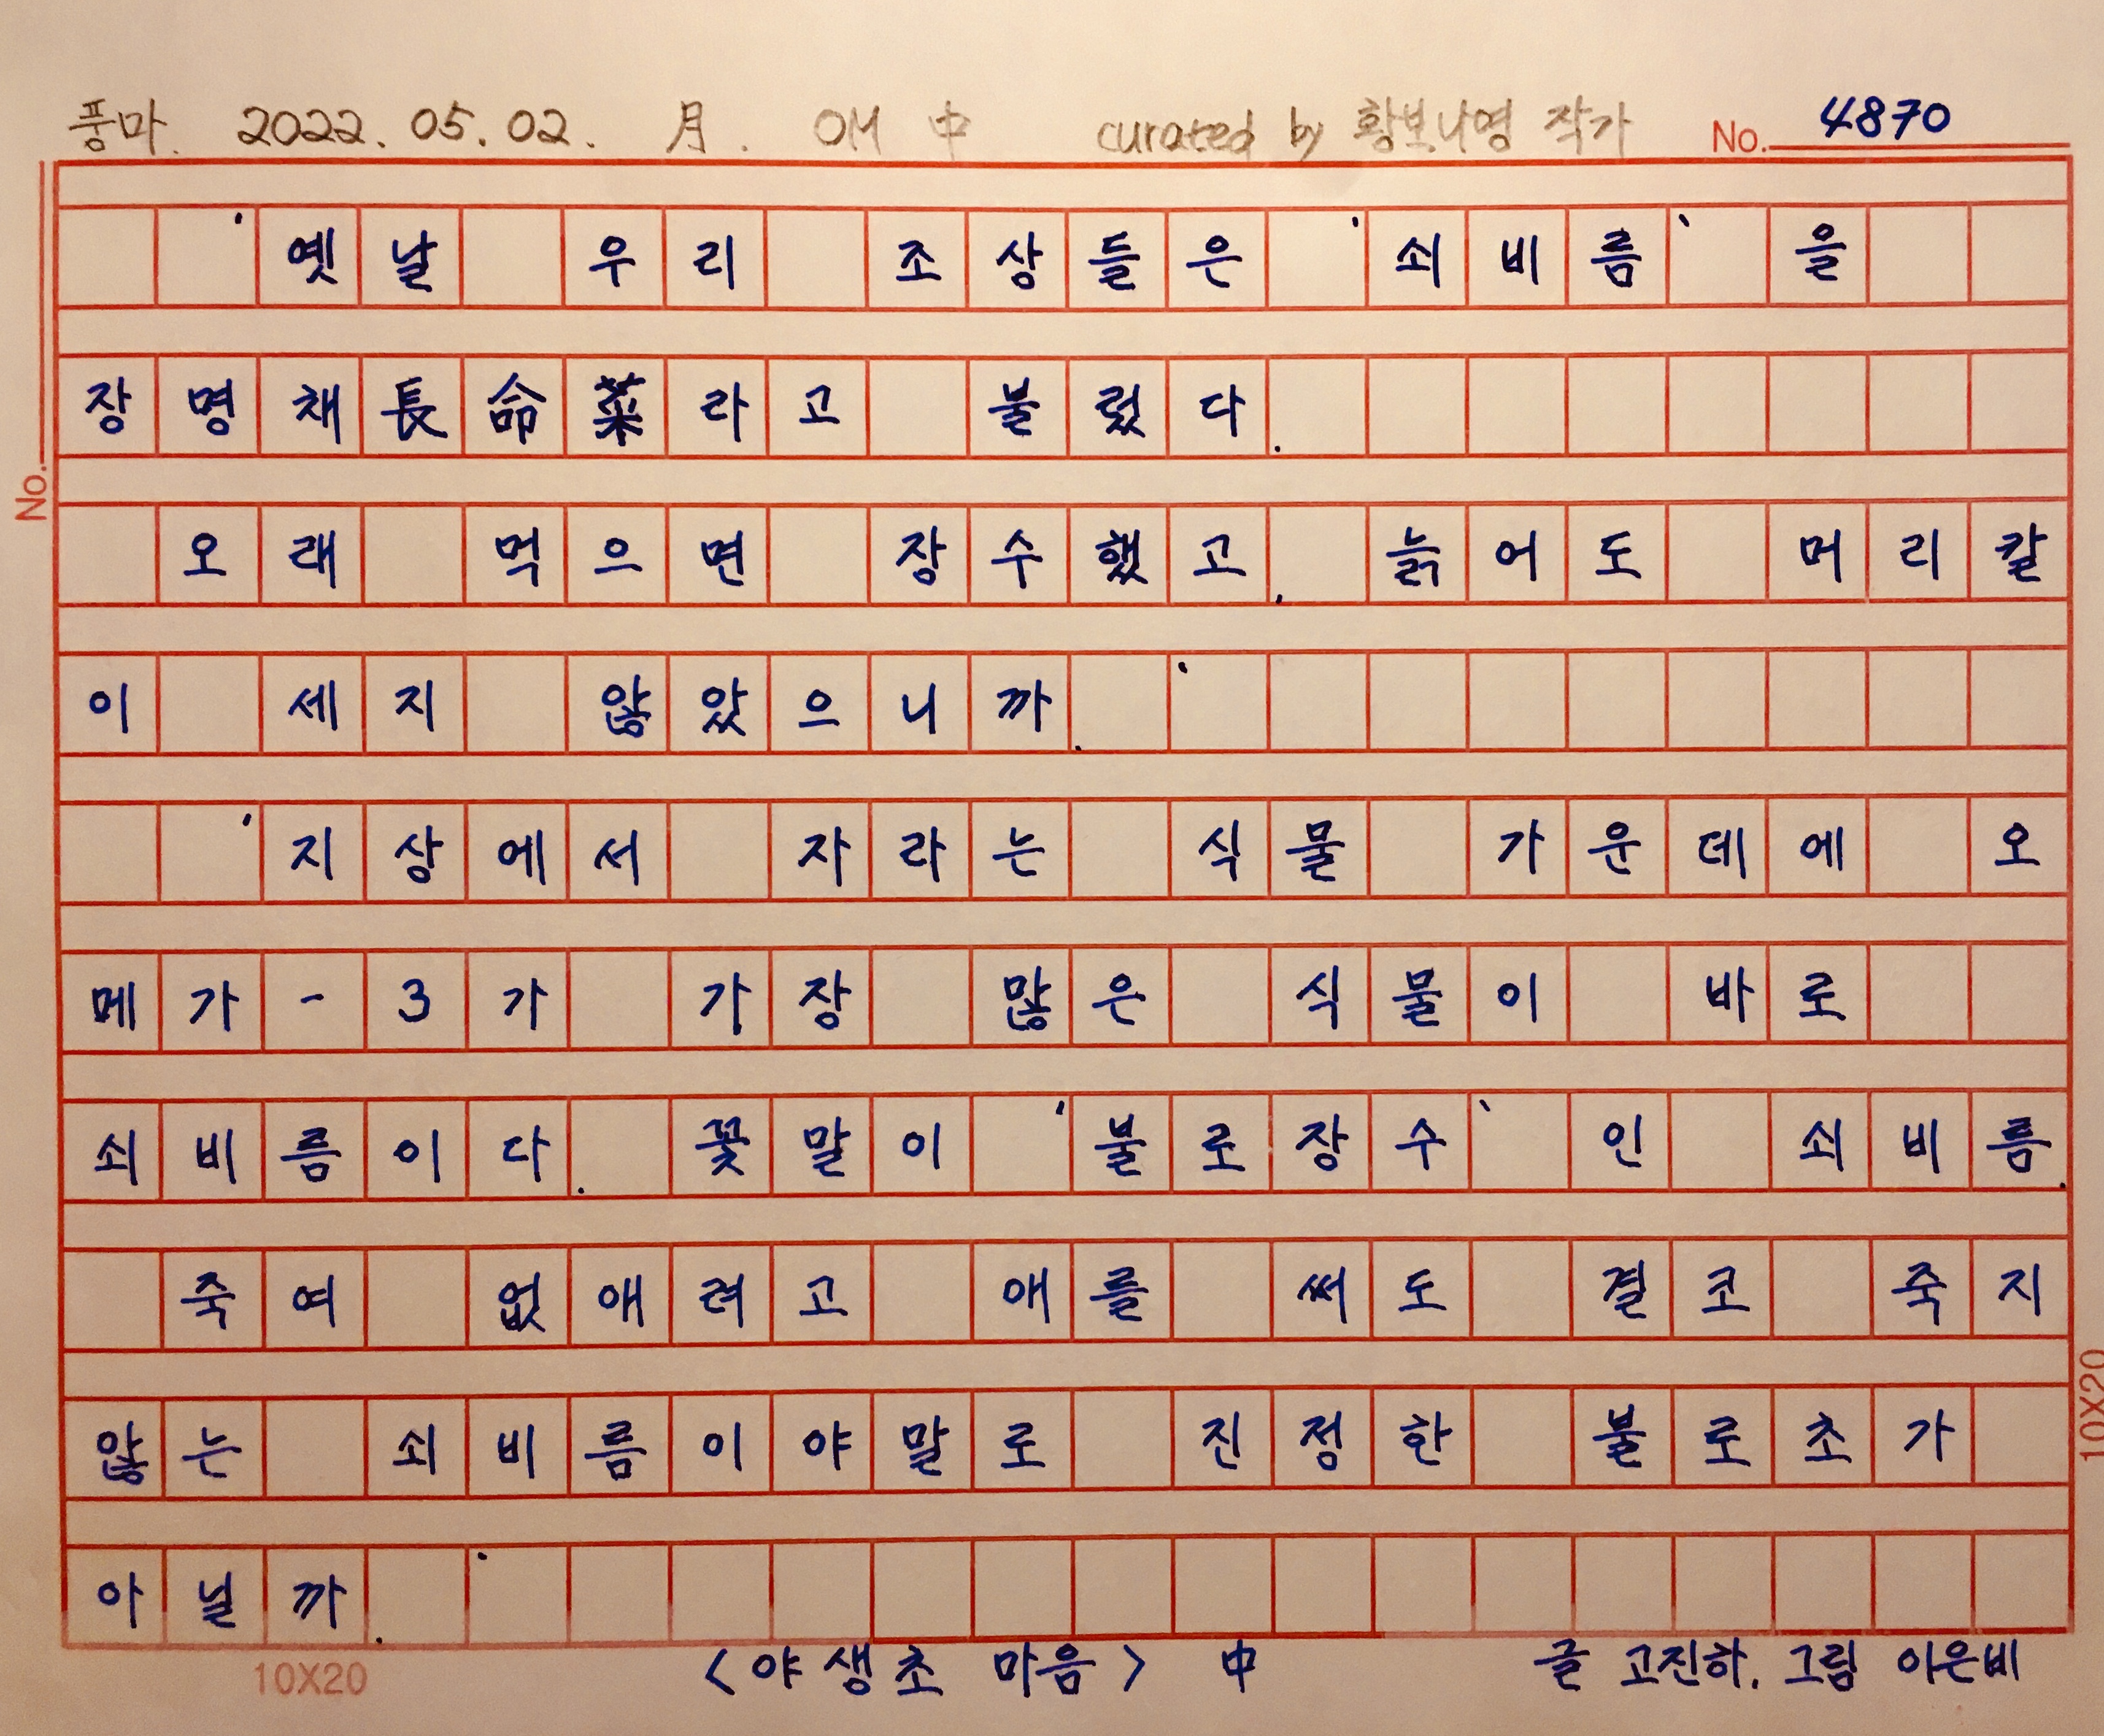 풍마. 2022. 05. 02. 月. OM 中 curated by 황보나영 작가 No. 4870
'옛날 우리 조상들은 '쇠비름' 을
장명채長命菜라고 불렀다.
오래 먹으면 장수했고, 늙어도 머리칼
이 세지 않았으니까.'
'지상에서 자라는 식물 가운데에 오
메가-3가 가장 많은 식물이 바로
쇠비름이다. 꽃말이 '불로장수' 인 쇠비름.
죽여 없애려고 애를 써도 결코 죽지
않는 쇠비름이야말로 진정한 불로초가
아닐까.'
<야생초 마음> 中 글 고진하. 그림 이은비
No.
10X20
10X20